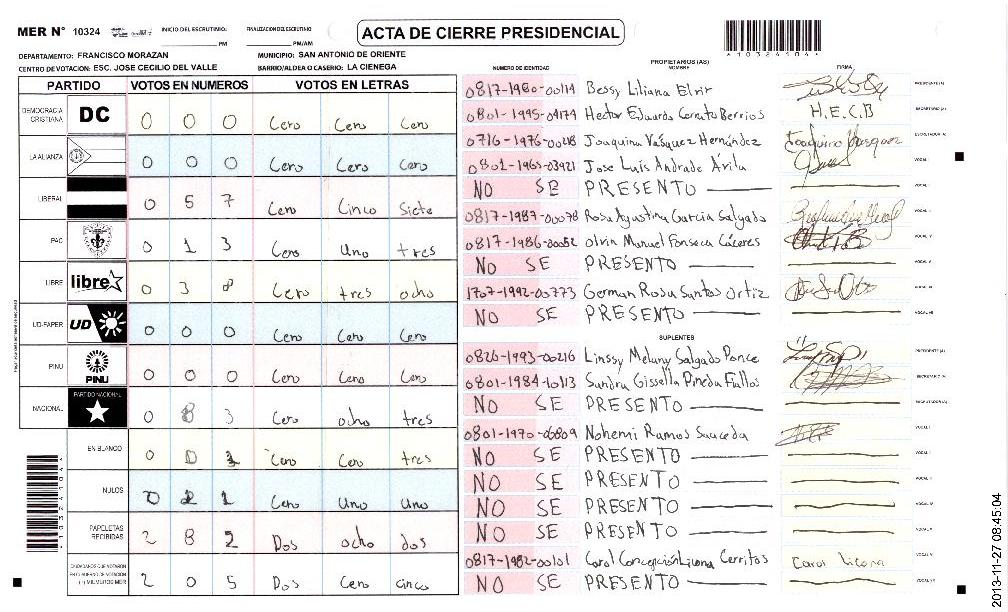 MER N° 10324 INICIO DEL ESCRUTINIO: PM FINALIZACION DEL ESCRUTINIO PM/AM
ACTA DE CIERRE PRESIDENCIAL
*10324104*
DEPARTAMENTO: FRANCISCO MORAZAN MUNICIPIO: SAN ANTONIO DE ORIENTE
CENTRO DE VOTACION: ESC. JOSE CECILIO DEL VALLE BARRIO/ALDEA O CASERIO: LA CIENEGA
PARTIDO VOTOS EN NUMEROS VOTOS EN LETRAS
DEMOCRACIA CRISTIANA DC 0 0 0 Cero Cero Cero
LA ALIANZA 0 0 0 Cero Cero Cero
LIBERAL 0 5 7 Cero Cinco Siete
PAC 0 1 3 Cero Uno tres
LIBRE libre 0 3 8 Cero tres ocho
UD-FAPER UD 0 0 0 Cero Cero Cero
PINU PINU 0 0 0 Cero Cero Cero
NACIONAL PARTIDO NACIONAL 0 8 3 Cero ocho tres
EN BLANCO 0 0 3 Cero Cero tres
NULOS 0 1 1 Cero Uno Uno
PAPELETAS RECIBIDAS 2 8 2 Dos ocho dos
CIUDADANOS QUE VOTARON EN CUADERNO DE VOTACION (+) MIEMBROS MER 2 0 5 Dos Cero cinco
*10324104*
PROPIETARIOS (AS)
NUMERO DE IDENTIDAD NOMBRE FIRMA
0817-1980-00114 Bessy Liliana Elvir PRESIDENTE (A)
0801-1995-04179 Hector Eduardo Cerrato Berrios H.E.C.B SECRETARIO (A)
0716-1976-00218 Joaquina Vásquez Hernández Joaquina Vasquez ESCRUTADOR (A)
0801-1965-03921 Jose Luis Andrade Ávila VOCAL I
NO SE PRESENTO VOCAL
0817-1987-00078 Rosa Agustina Garcia Salgado VOCAL
0817-1986-00052 Olvin Manuel Fonseca Cáceres VOCAL
NO SE PRESENTO VOCAL
1707-1992-00773 German Rosa Santos Ortiz VOCAL
NO SE PRESENTO VOCAL
SUPLENTES
0826-1993-00216 Linssy Melany Salgado Ponce PRESIDENTE (A)
0801-1984-10113 Sandra Gissella Pineda Fiallos SECRETARIO (A)
NO SE PRESENTO ESCRUTADOR (A)
0801-1970-06809 Nohemi Ramos Sauceda VOCAL I
NO SE PRESENTO VOCAL
NO SE PRESENTO VOCAL
NO SE PRESENTO VOCAL
NO SE PRESENTO VOCAL
0817-1982-00101 Carol Concepción Licona Cerritos Carol Licona VOCAL
NO SE PRESENTO VOCAL
2013-11-27 08:45:04